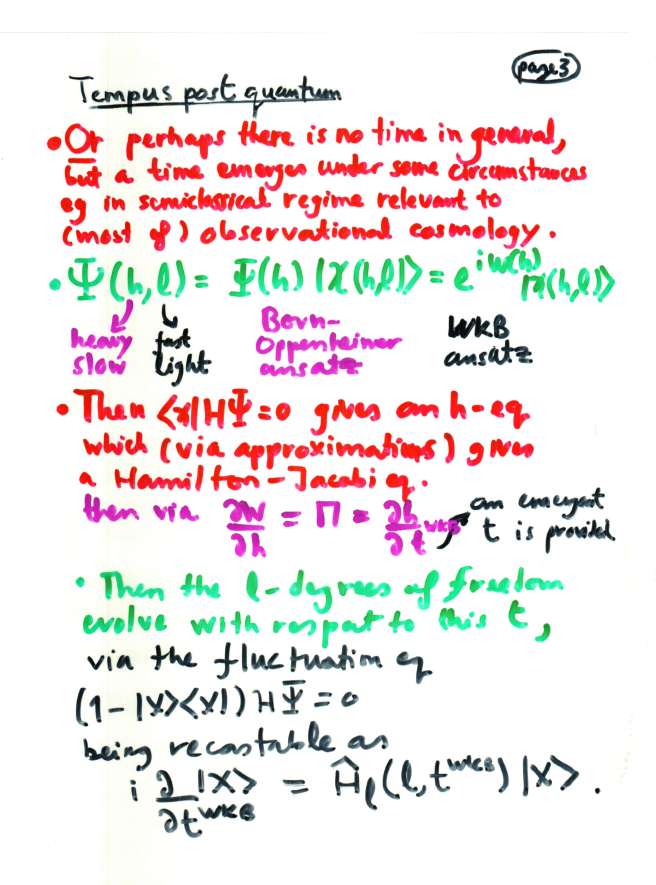 page 3
Tempus post quantum
• Or perhaps there is no time in general,
but a time emerges under some circumstances
eg in semiclassical regime relevant to
(most of) observational cosmology.
• Ψ(h,l) = Ψ(h) |χ(h,l)⟩ = e^{iW(h)} |χ(h,l)⟩
heavy fast Born- WKB
slow light Oppenheimer ansatz
ansatz
• Then ⟨χ|HΨ=0 gives an h-eq
which (via approximations) gives
a Hamilton-Jacobi eq.
then via ∂W/∂h = Π = ∂h/∂t^{WKB} an emergent
t is provided
• Then the l-degrees of freedom
evolve with respect to this t,
via the fluctuation eq
(1-|χ⟩⟨χ|)HΨ=0
being recastable as
i ∂|χ⟩/∂t^{WKB} = Ĥ_l(l,t^{WKB})|χ⟩.